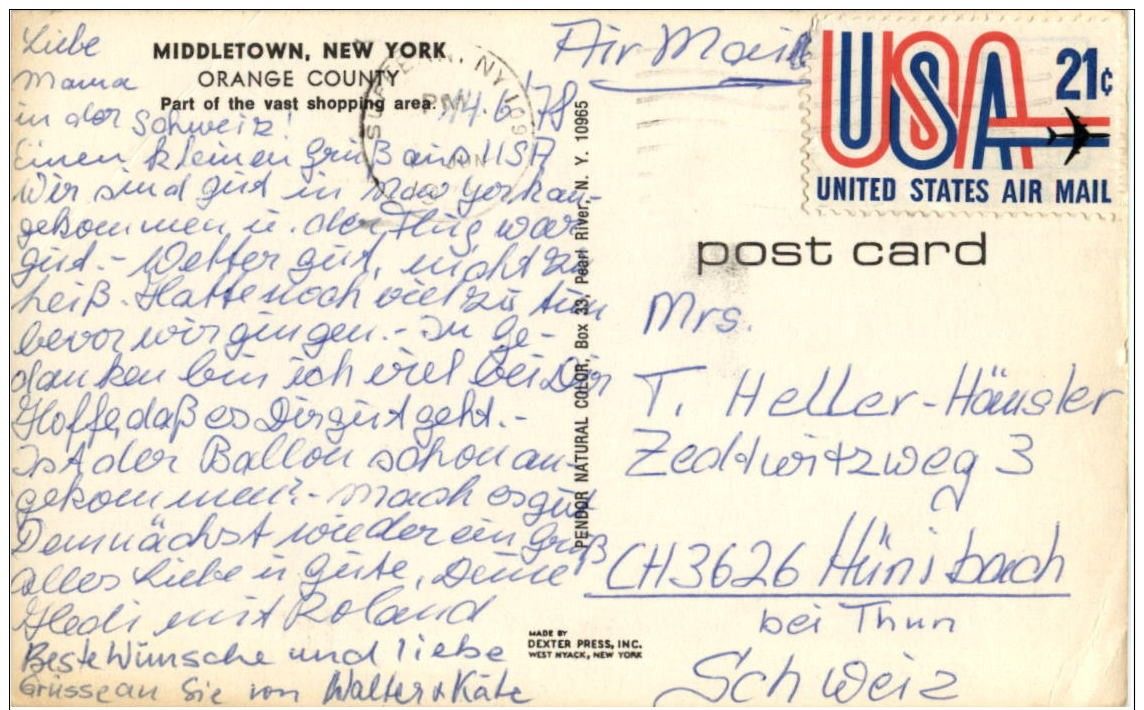 Liebe
MIDDLETOWN, NEW YORK
ORANGE COUNTY
Part of the vast shopping area.
Mama
14.6.78
in der Schweiz!
Einen kleinen Gruß aus USA
Wir sind gut in New York an-
gekommen u. der Flug war
gut. - Wetter gut, nicht zu
heiß. Hatte noch viel zu tun
bevor wir gingen. - In Ge-
danken bin ich viel bei Dir
Hoffe, daß es Dir gut geht. -
Ist der Ballon schon an-
gekommen? - Mach es gut
Demnächst wieder ein Gruß
alles Liebe u Gute, Deine
Hedi mit Roland
Beste Wünsche und liebe
Grüsse an Sie von Walter & Käte
PENDOR NATURAL COLOR, Box 33, Pearl River, N. Y. 10965
MADE BY
DEXTER PRESS, INC.
WEST NYACK, NEW YORK
SUFFERN, NY 109
PM
JUN
19
Air Mail
USA
21¢
UNITED STATES AIR MAIL
post card
Mrs.
T. Heller-Häusler
Zedtwitzweg 3
CH 3626 Hünibach
bei Thun
Schweiz